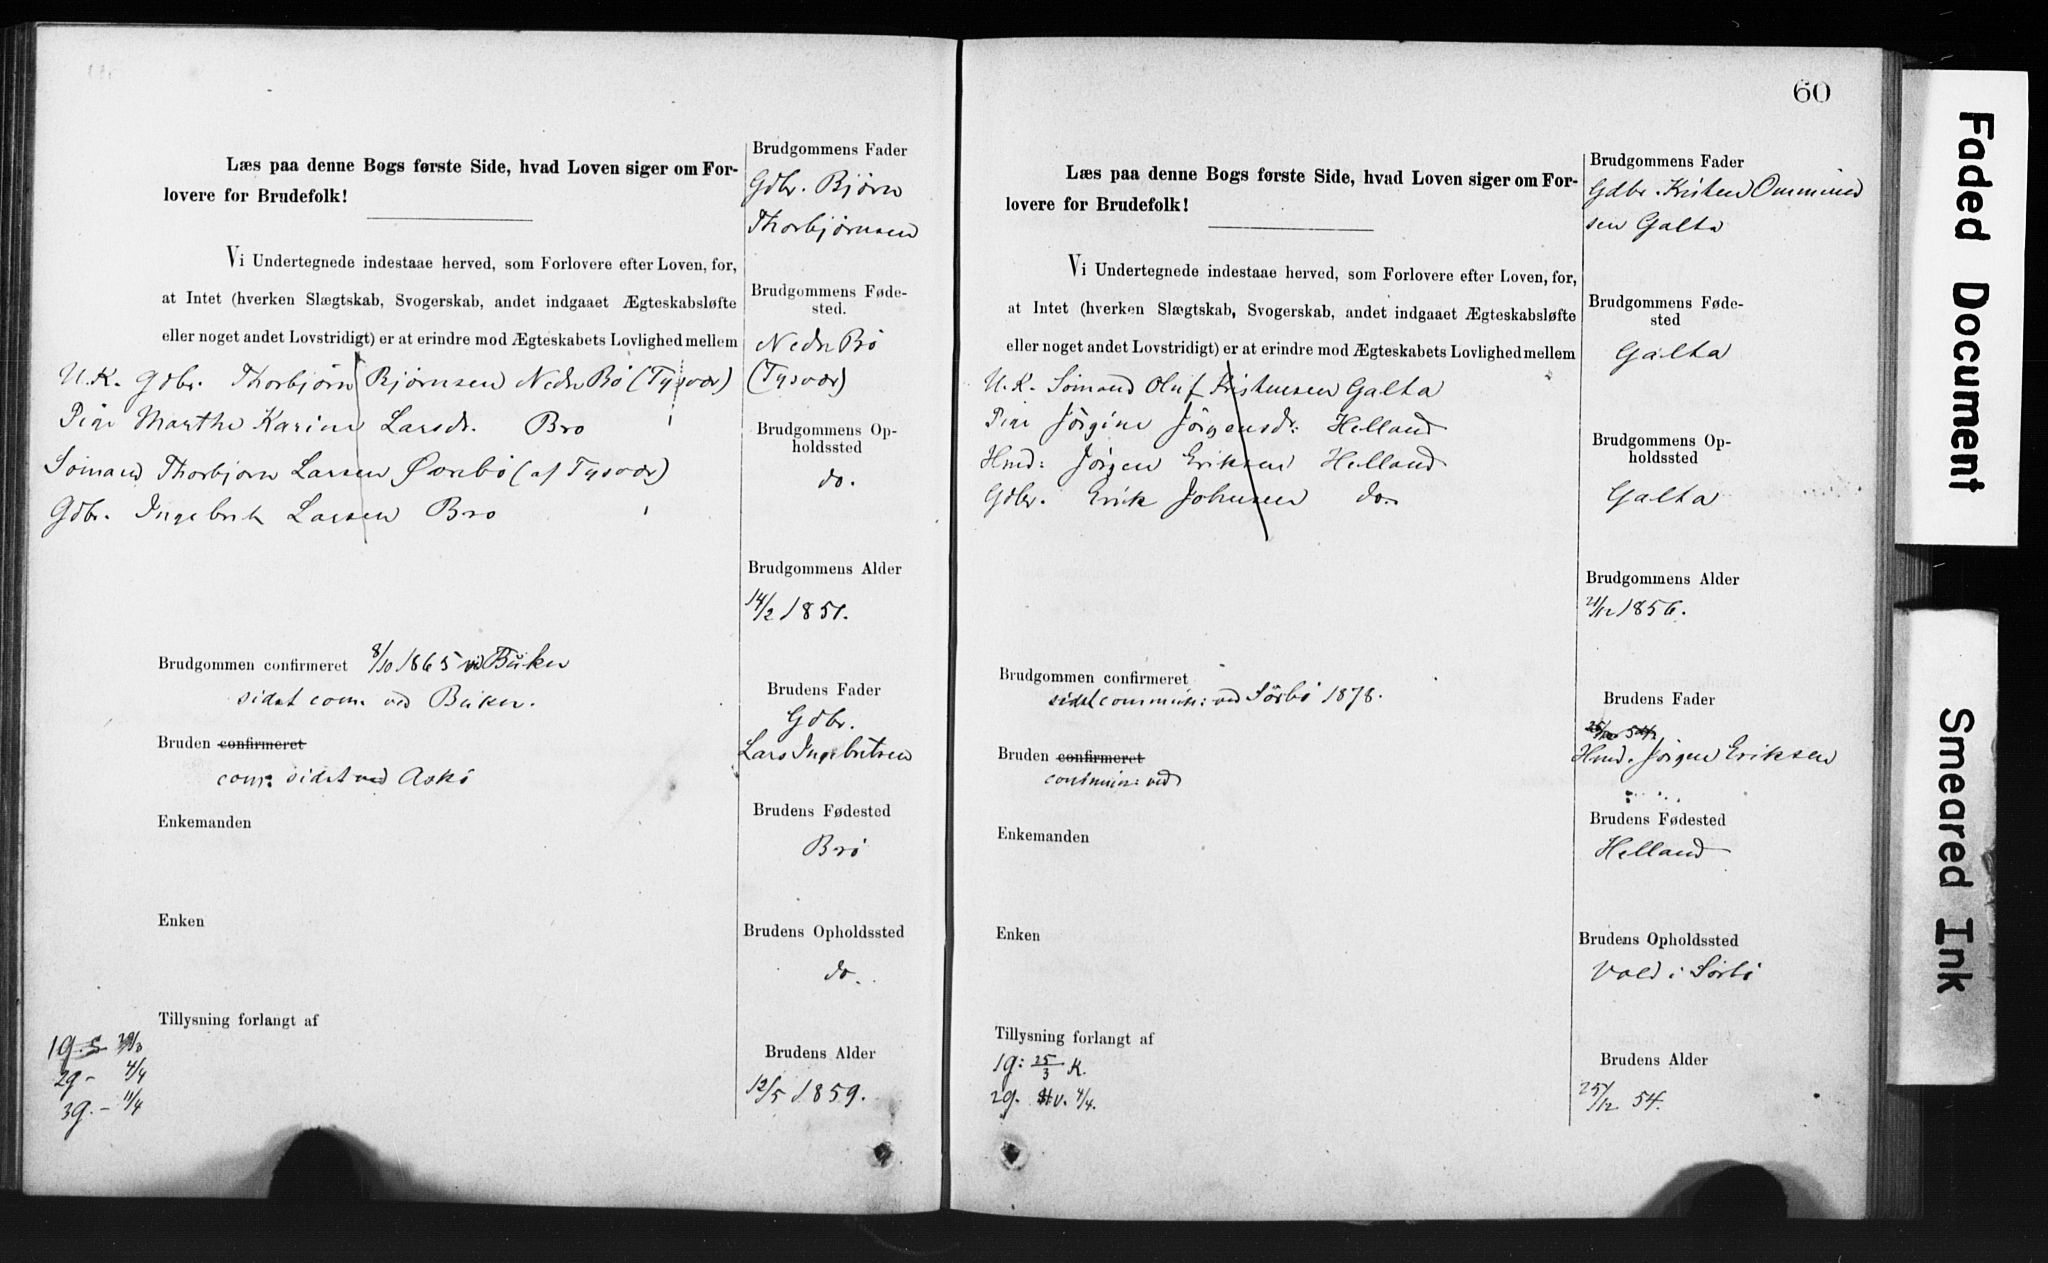 Læs paa denne Bogs første Side, hvad Loven siger om For-
lovere for Brudefolk!
Vi Undertegnede indestaae herved, som Forlovere efter Loven, for,
at Intet (hverken Slægtskab, Svogerskab, andet indgaaet Ægteskabsløfte
eller noget andet Lovstridigt) er at erindre mod Ægteskabets Lovlighed mellem
U.K. Gdbr. Thorbjørn Bjørnsen Nedre Bø (Tysvær)
Pige Marthe Karine Larsdr. Bro
Sömand Thorbjørn Larsen (af Tysvær)
Gdbr. Ingebrik Larsen Bro
Brudgommen confirmeret 8/10 1865 ved
sidst com. ved
Bruden confirmeret
com. sidst ved Askö
Enkemanden
Enken
Tillysning forlangt af
1g.
2g - 4/4
3g. - 11/4
Brudgommens Fader
Gdbr. Bjørn
Thorbjørnsen
Brudgommens Føde-
sted.
Nedre Bö
(Tysvær)
Brudgommens Op-
holdssted
do.
Brudgommens Alder
14/2 1851.
Brudens Fader
Gdbr.
Lars Ingebritsen
Brudens Fødested
Bro
Brudens Opholdssted
do.
Brudens Alder
12/5 1859.
60
Læs paa denne Bogs første Side, hvad Loven siger om For-
lovere for Brudefolk!
Vi Undertegnede indestaae herved, som Forlovere efter Loven, for,
at Intet (hverken Slægtskab, Svogerskab, andet indgaaet Ægteskabsløfte
eller noget andet Lovstridigt) er at erindre mod Ægteskabets Lovlighed mellem
U.K. Sömand Oluf Kristensen Galta
Pige Jörgine Jörgensdr: Helland
Hmd: Jörgen Eriksen Helland
Gdbr. Erik Johnsen do.
Brudgommen confirmeret
sidst commun: ved Sörbö 1878.
Bruden confirmeret
commun: ved
Enkemanden
Enken
Tillysning forlangt af
1g: 25/3 K.
2g. v. 4/4.
Brudgommens Fader
Gdbr. Kristen Ommund
sen Galta
Brudgommens Føde-
sted
Galta
Brudgommens Op-
holdssted
Galta
Brudgommens Alder
21/12 1856.
Brudens Fader
Hmd. Jörgen Eriksen
Brudens Fødested
Helland
Brudens Opholdssted
Vold i Sörbö
Brudens Alder
25/12 54.
Faded Document
Smeared Ink